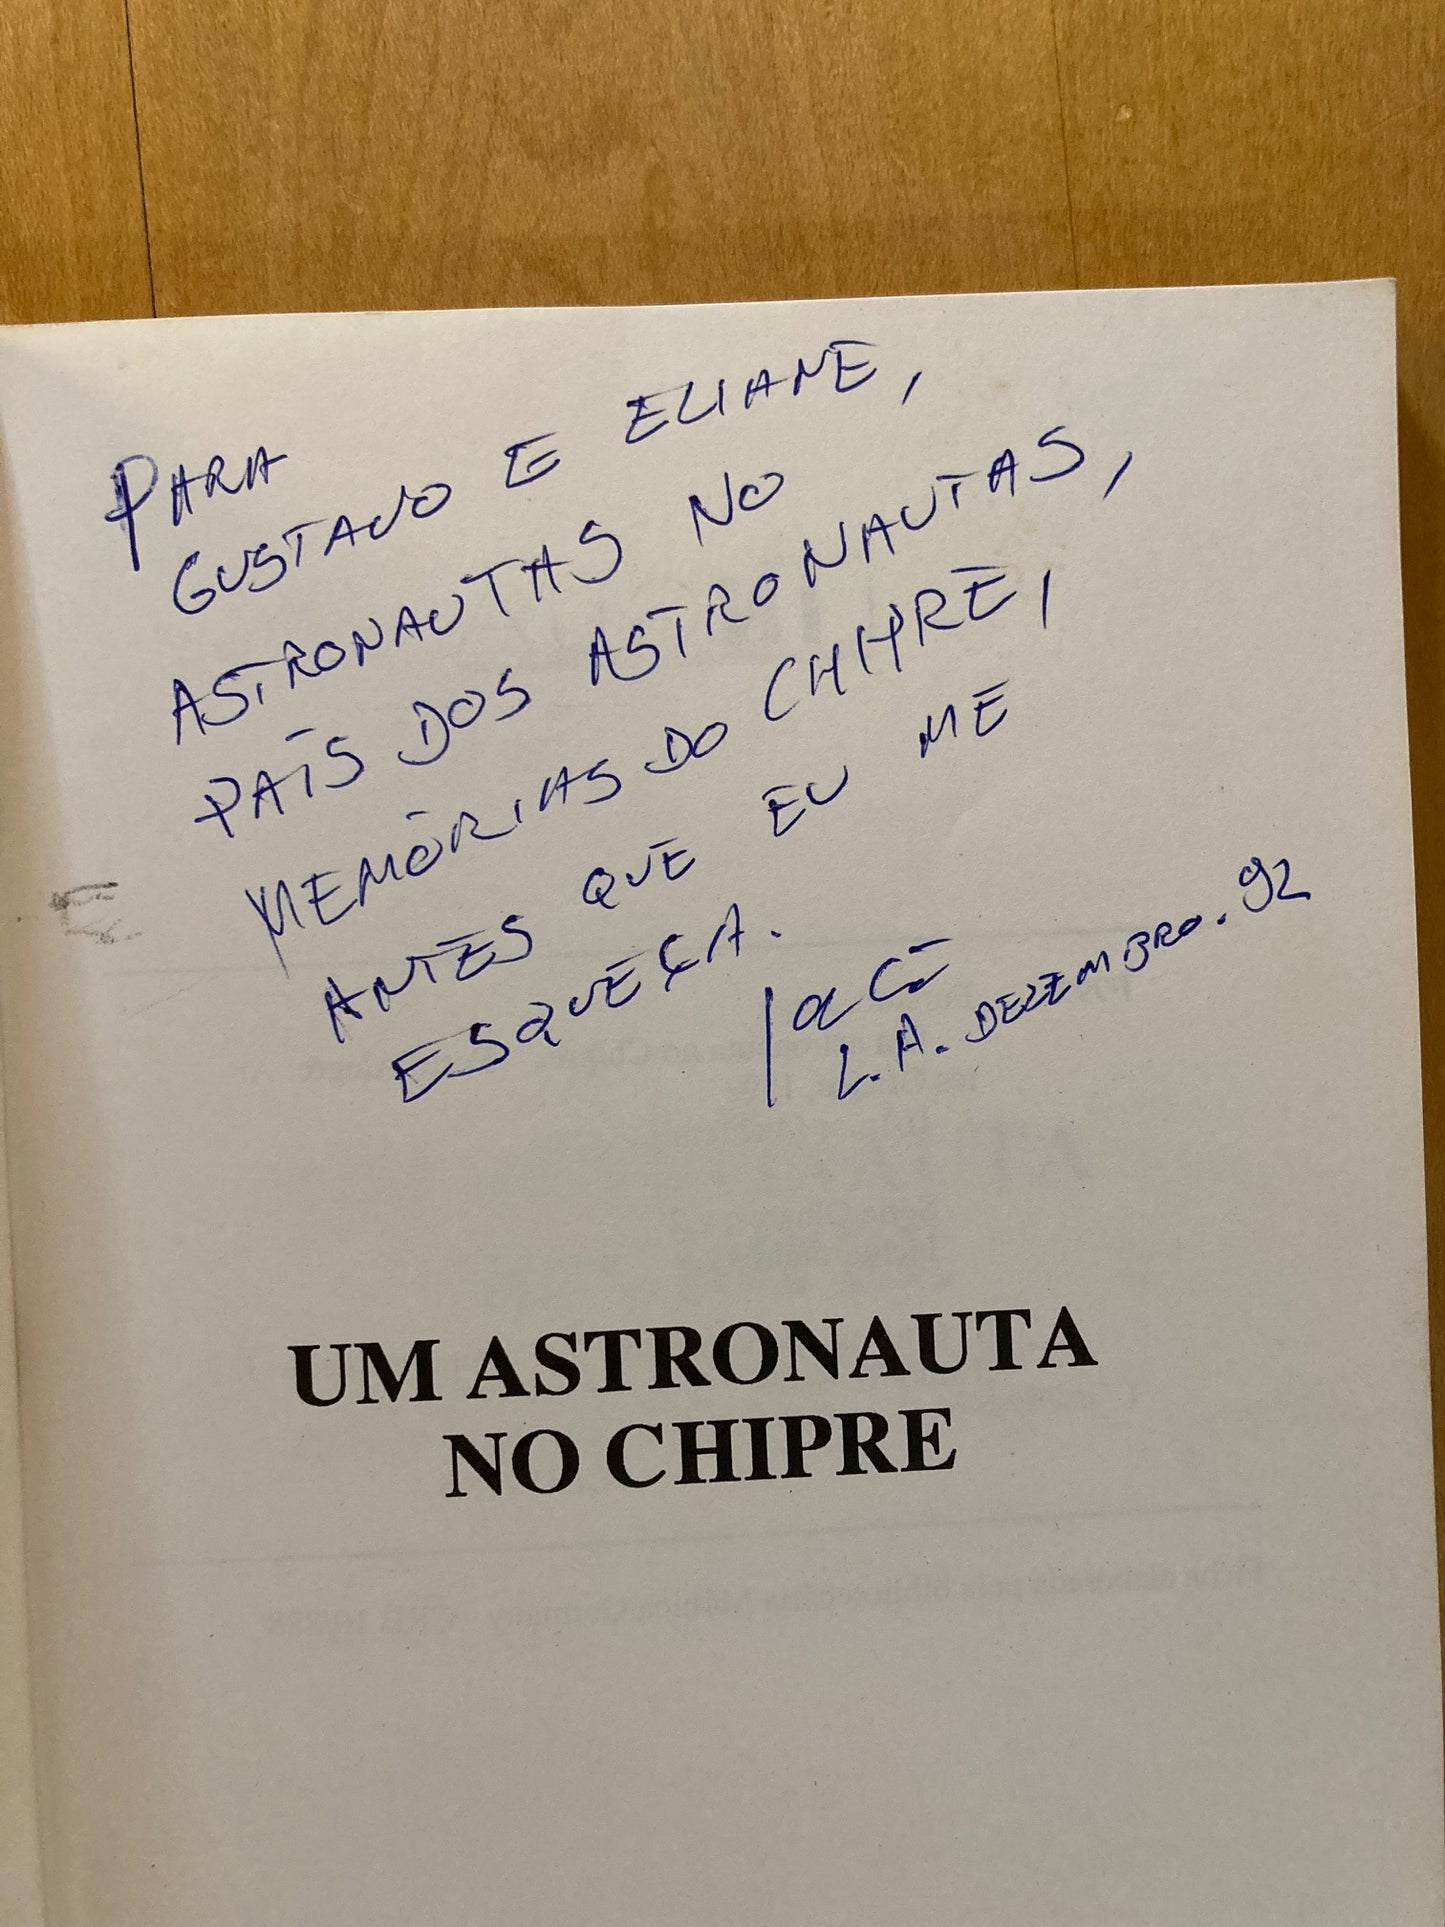 PARA
GUSTAVO E ELIANE,
ASTRONAUTAS NO
PAÍS DOS ASTRONAUTAS,
MEMÓRIAS DO CHIPRE,
ANTES QUE EU ME
ESQUEÇA.
L.A. DEZEMBRO. 92
UM ASTRONAUTA
NO CHIPRE